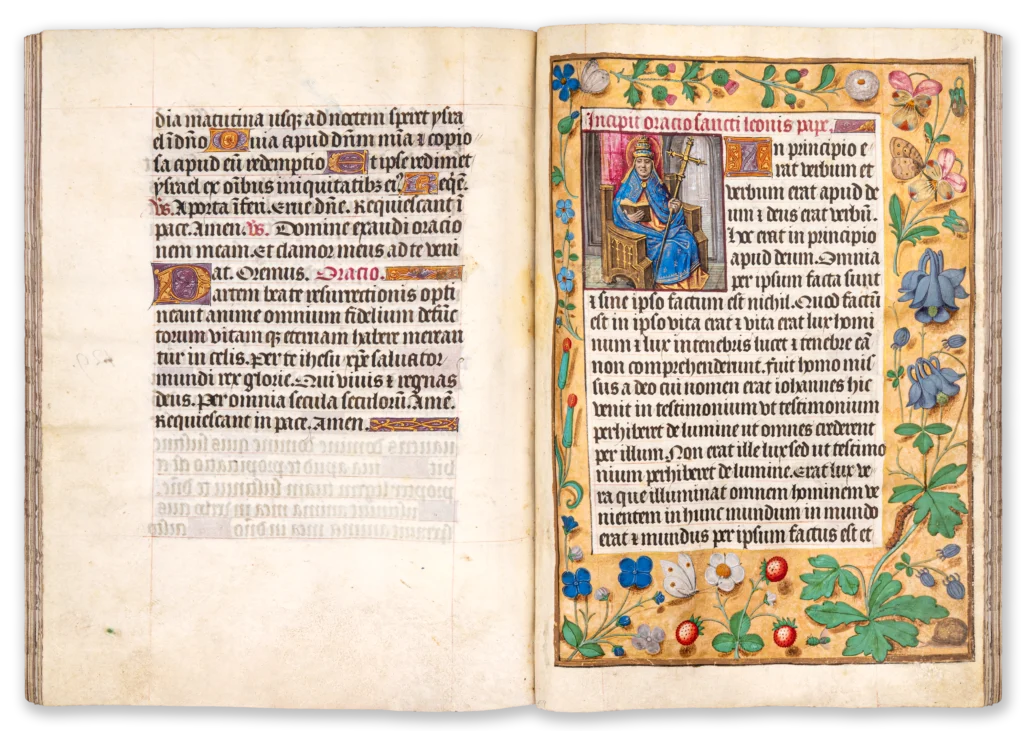 dia matutina usq; ad noctem speret ysra
el i dño Quia apud dñm mia ⁊ copio
sa apud eū redemptio Et ipse redimet
ysrael ex oïbus iniquitatib; ei; Reqē.
Vs. A porta iferi. Erue dñe. Requiescant i
pace. Amen. Vs. Domine exaudi oracio
nem meam. Et clamor meus ad te veni
at. Oremus. Oracio.
Partem beate resurrectionis opti
neant anime omnium fidelium defūc
torum vitam q; eternam habere merean
tur in celis. Per te ihesu xpē saluator
mundi rex glorie. Qui viuis ⁊ regnas
deus. Per omnia secula seculorū. Amē.
Requiescant in pace. Amen.
Incipit oracio sancti leonis pape.
In principio e
rat verbum et
verbum erat apud de
um ⁊ deus erat verbū.
Hoc erat in principio
apud deum. Omnia
per ipsum facta sunt
⁊ sine ipso factum est nichil. Quod factū
est in ipso vita erat ⁊ vita erat lux homi
num ⁊ lux in tenebris lucet ⁊ tenebre eā
non comprehenderunt. fuit homo mis
sus a deo cui nomen erat iohannes hic
venit in testimonium vt testimonium
perhiberet de lumine ut omnes crederent
per illum. Non erat ille lux sed ut testimo
nium perhiberet de lumine. Erat lux ve
ra que illuminat omnem hominem ve
nientem in hunc mundum in mundo
erat ⁊ mundus per ipsum factus est et